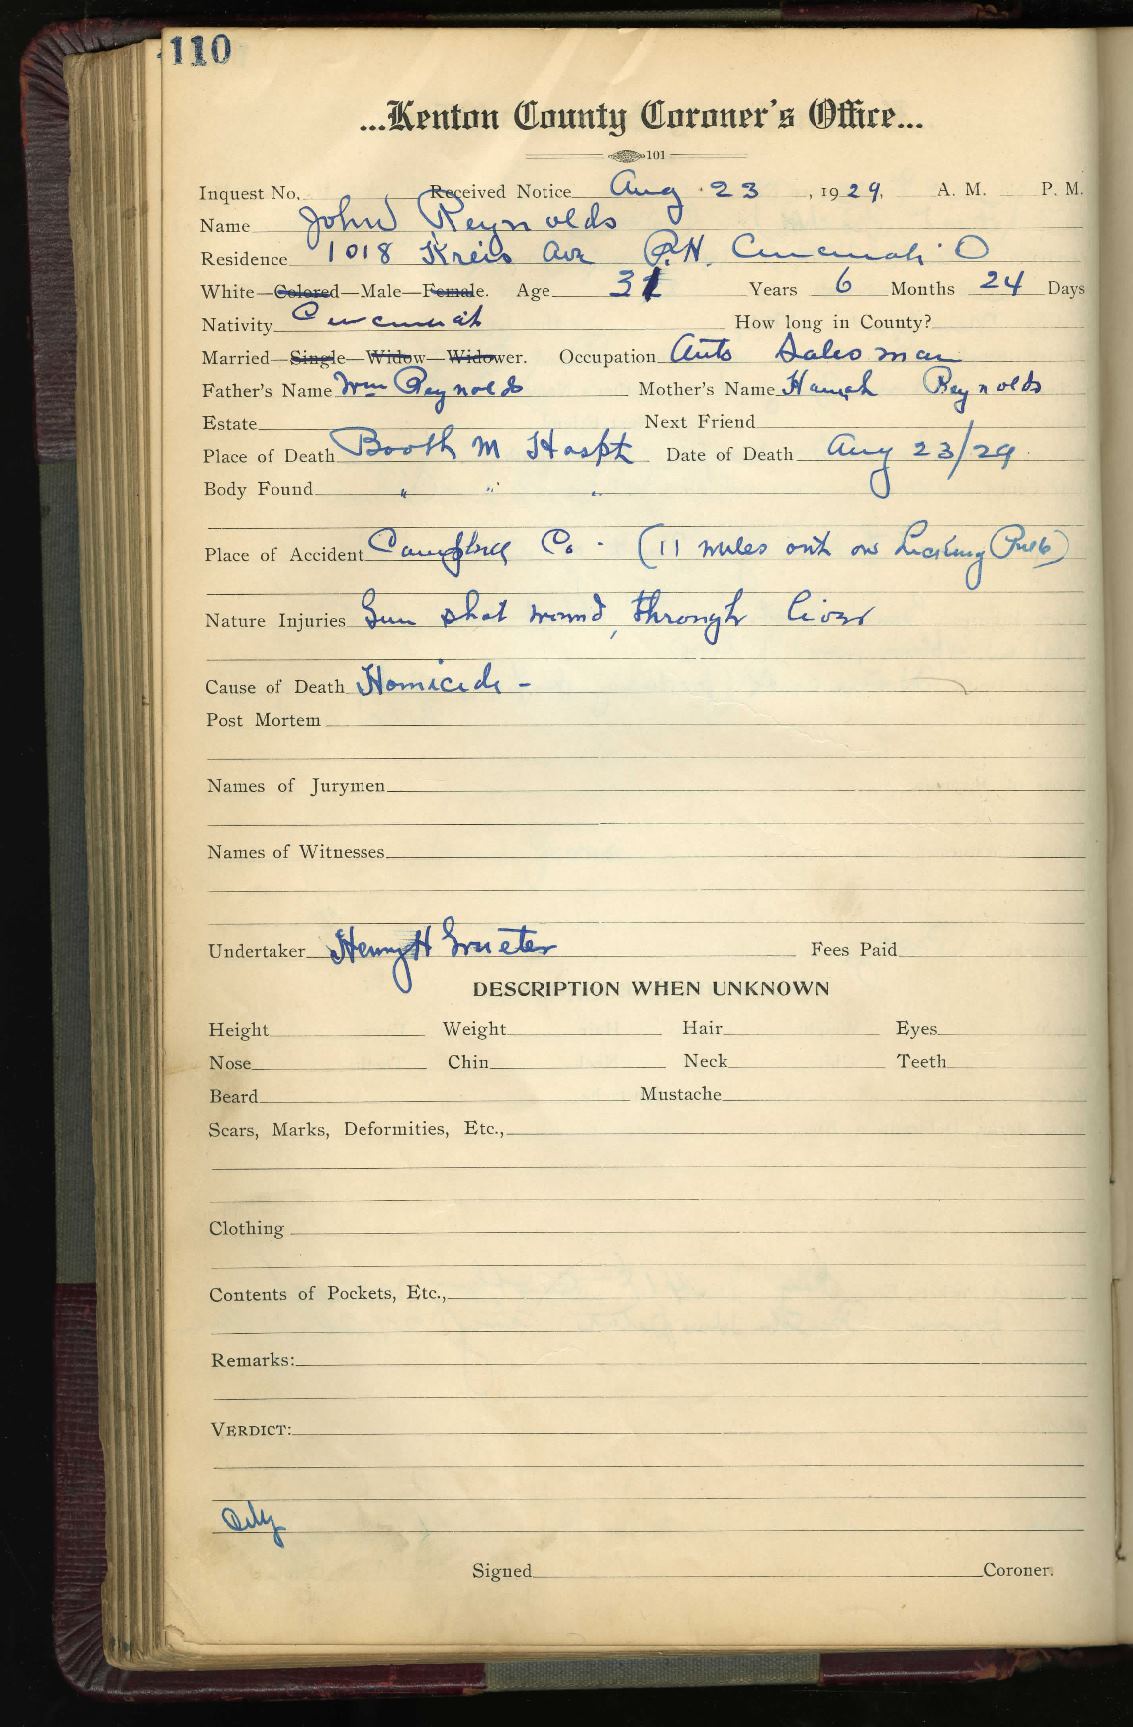 110
...Kenton County Coroner's Office...
101
Inquest No. Received Notice Aug 23, 1929, A. M. P. M.
Name John Reynolds
Residence 1018 Kreis Ave P.H. Cincinnati O
White—Colored—Male—Female. Age 31 Years 6 Months 24 Days
Nativity Cincinnati How long in County?
Married—Single—Widow—Widower. Occupation Auto Salesman
Father's Name Wm Reynolds Mother's Name Hannah Reynolds
Estate Next Friend
Place of Death Booth M Hospt Date of Death Aug 23/29
Body Found " " "
Place of Accident Campbell Co. (11 miles out on Licking Pike)
Nature Injuries Gun shot wound, through liver
Cause of Death Homicide -
Post Mortem
Names of Jurymen
Names of Witnesses
Undertaker Henry H Grueter Fees Paid
DESCRIPTION WHEN UNKNOWN
Height Weight Hair Eyes
Nose Chin Neck Teeth
Beard Mustache
Scars, Marks, Deformities, Etc.,
Clothing
Contents of Pockets, Etc.,
Remarks:
VERDICT:
Signed Coroner.